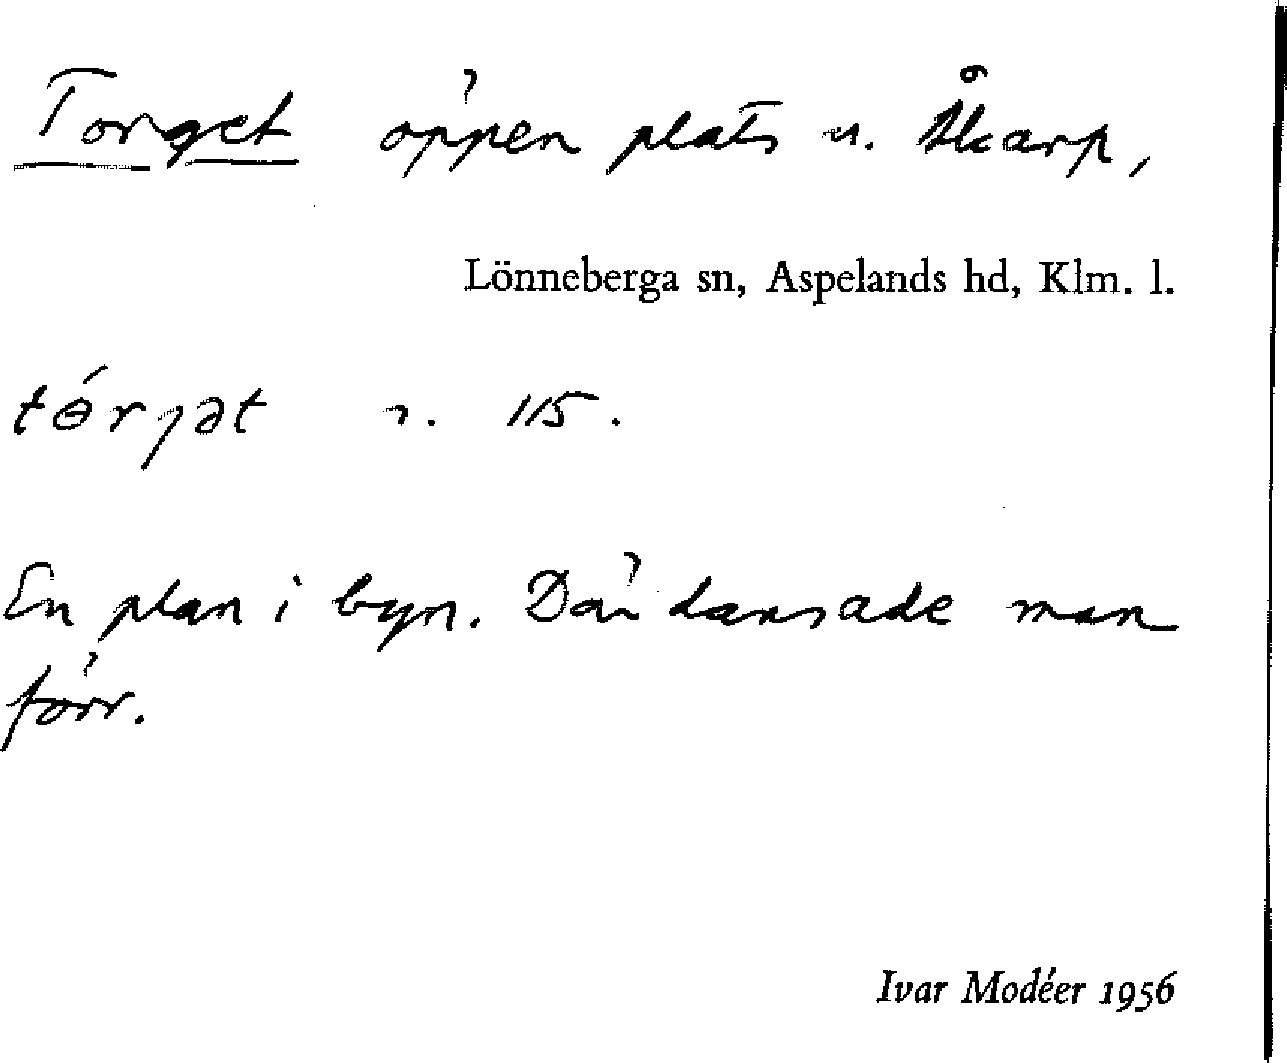 Torget öppen plats u. Åkarp,
Lönneberga sn, Aspelands hd, Klm. l.
tɵ́rjət n. 115.
En plan i byn. Där dansade man
förr.
Ivar Modéer 1956